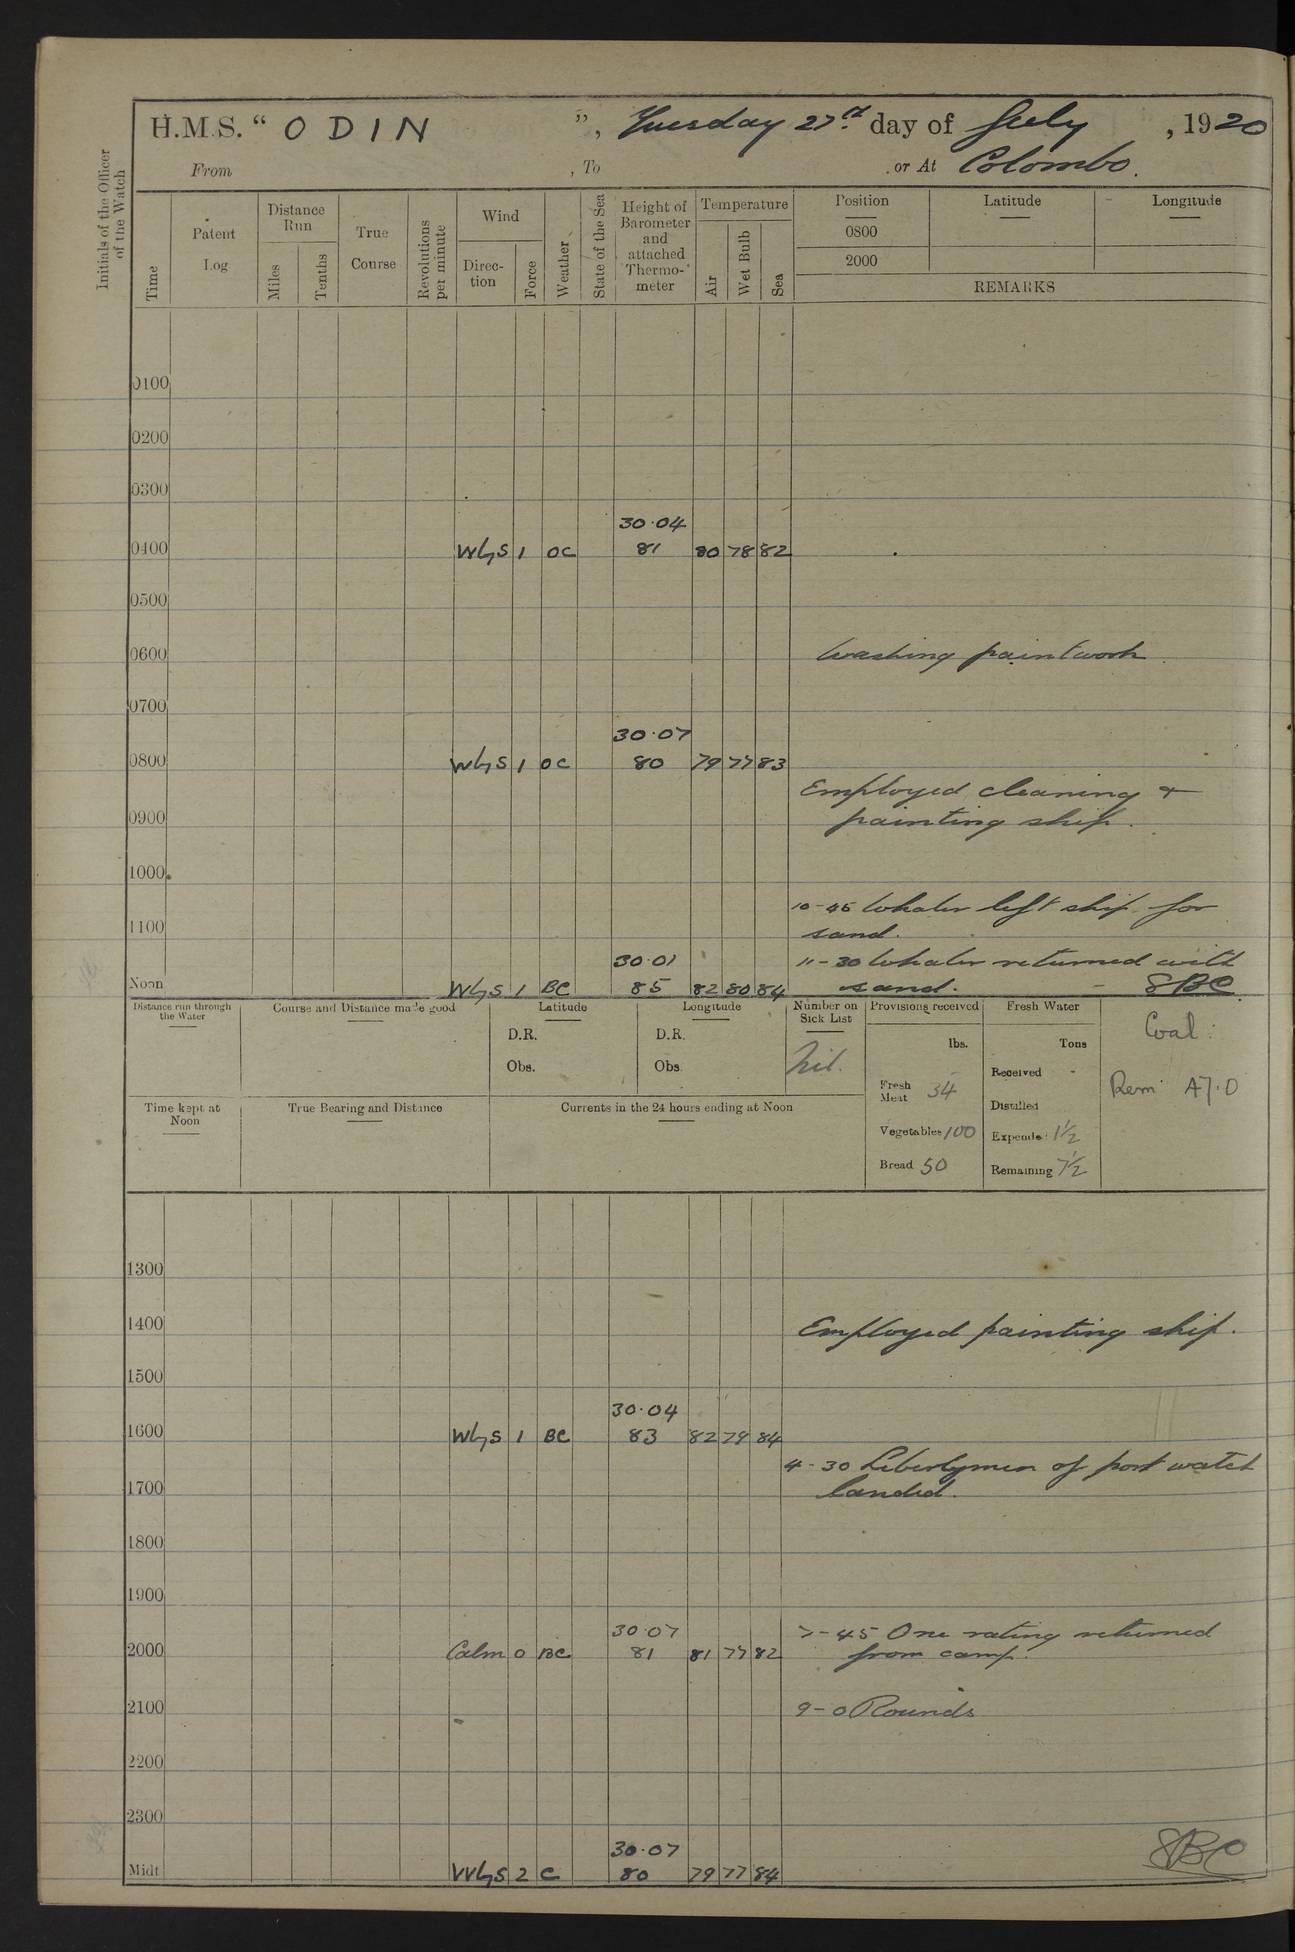 H.M.S. " ODIN ", Tuesday 27th day of July, 1920
From , To , or At Colombo.
Initials of the Officer of the Watch
Time
Patent Log
Distance Run
Miles
Tenths
True Course
Revolutions per minute
Wind
Direc-tion
Force
Weather
State of the Sea
Height of Barometer and attached Thermo-meter
Temperature
Air
Wet Bulb
Sea
Position Latitude Longitude
0800
2000
REMARKS
0100
0200
0300
30.04
0400 WbyS 1 OC 81 80 78 82
0500
0600 Washing paintwork
0700
30.07
0800 WbyS 1 OC 80 79 77 83
Employed cleaning &
0900 painting ship.
1000
10-45 Whaler left ship for
1100 sand.
30.01 11-30 Whaler returned with
Noon WbyS 1 BC 85 82 80 84 sand. - SBC
Distance run through the Water
Course and Distance made good
Latitude
D.R.
Obs.
Longitude
D.R.
Obs.
Number on Sick List
Nil.
Provisions received
lbs.
Fresh Meat 34
Vegetables 100
Bread 50
Fresh Water
Tons
Received -
Distilled
Expended 1½
Remaining 7½
Coal:
Rem: 47.0
Time kept at Noon
True Bearing and Distance
Currents in the 24 hours ending at Noon
1300
1400 Employed painting ship.
1500
30.04
1600 WbyS 1 BC 83 82 79 84
4-30 Libertymen of port watch
1700 landed.
1800
1900
30.07 7-45 One rating returned
2000 Calm 0 BC 81 81 77 82 from camp.
2100 9-0 Rounds
2200
2300
30.07
Midt WbyS 2 C 80 79 77 84 SBC